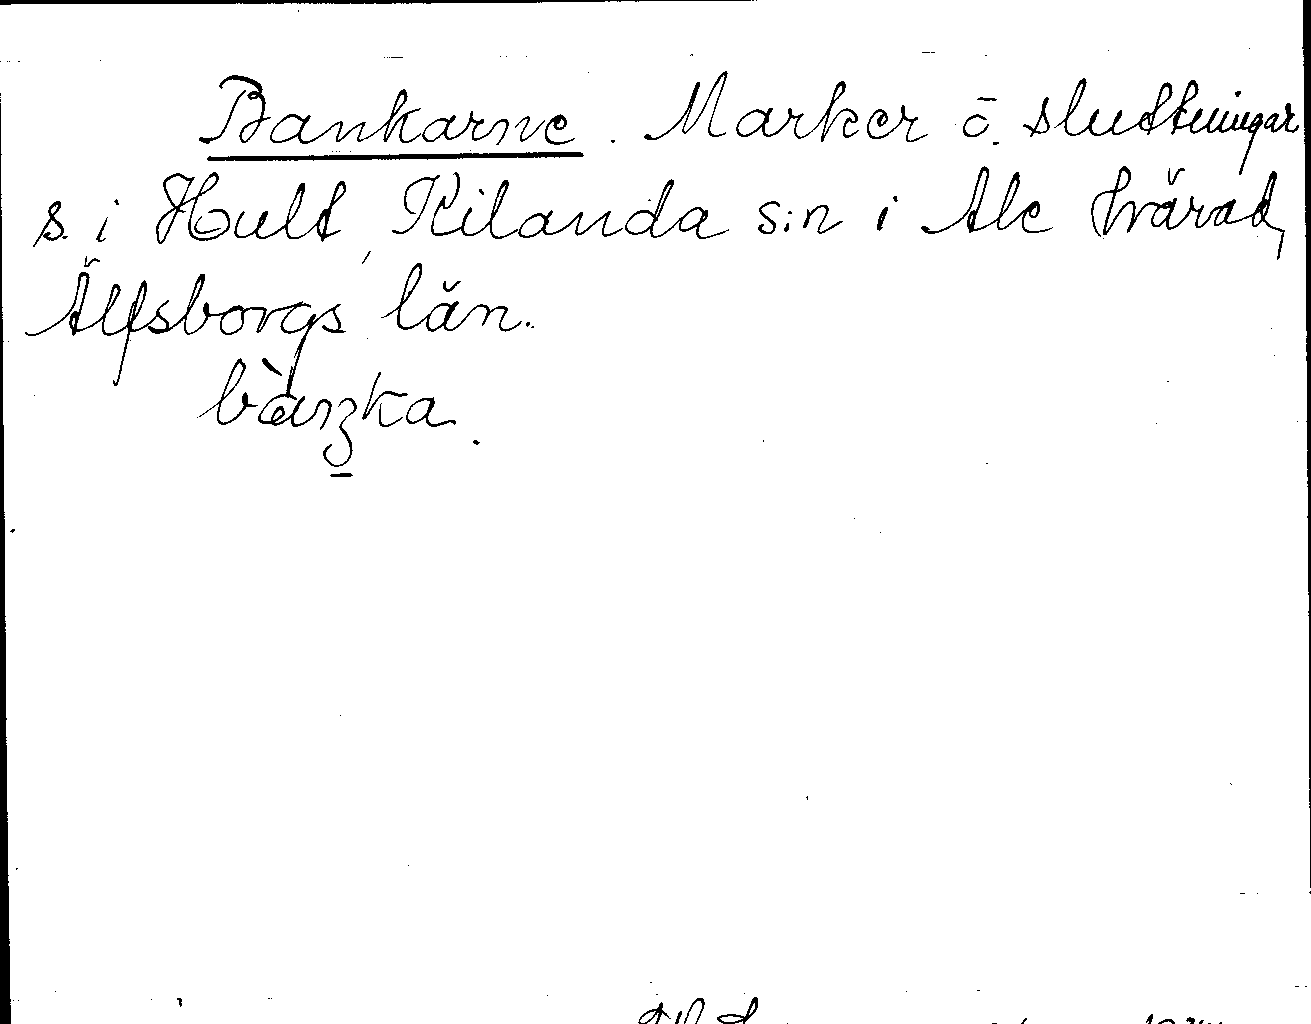 Bankarne. Marker ō. sluttningar
s. i Hult, Kilanda s:n i Ale härad,
Älfsborgs län.
bàŋka.